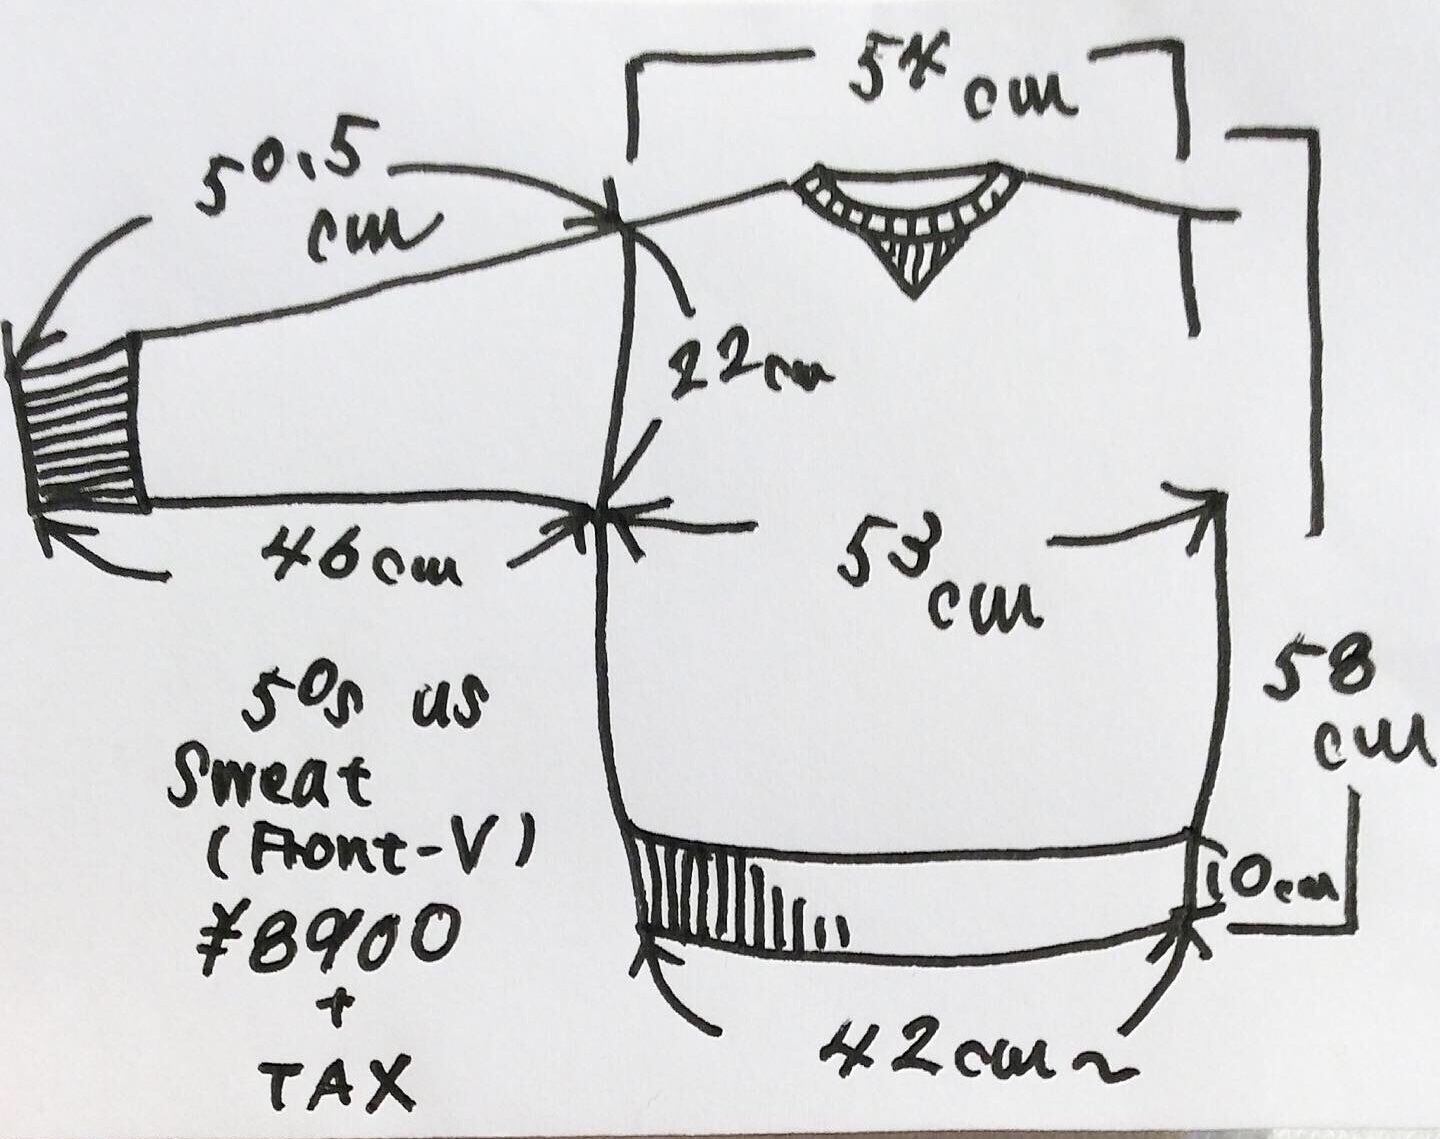 54cm
50.5
cm
22cm
53
cm
46cm
58
cm
10cm
42cm~
50s us
Sweat
(Front-V)
¥8900
+
TAX